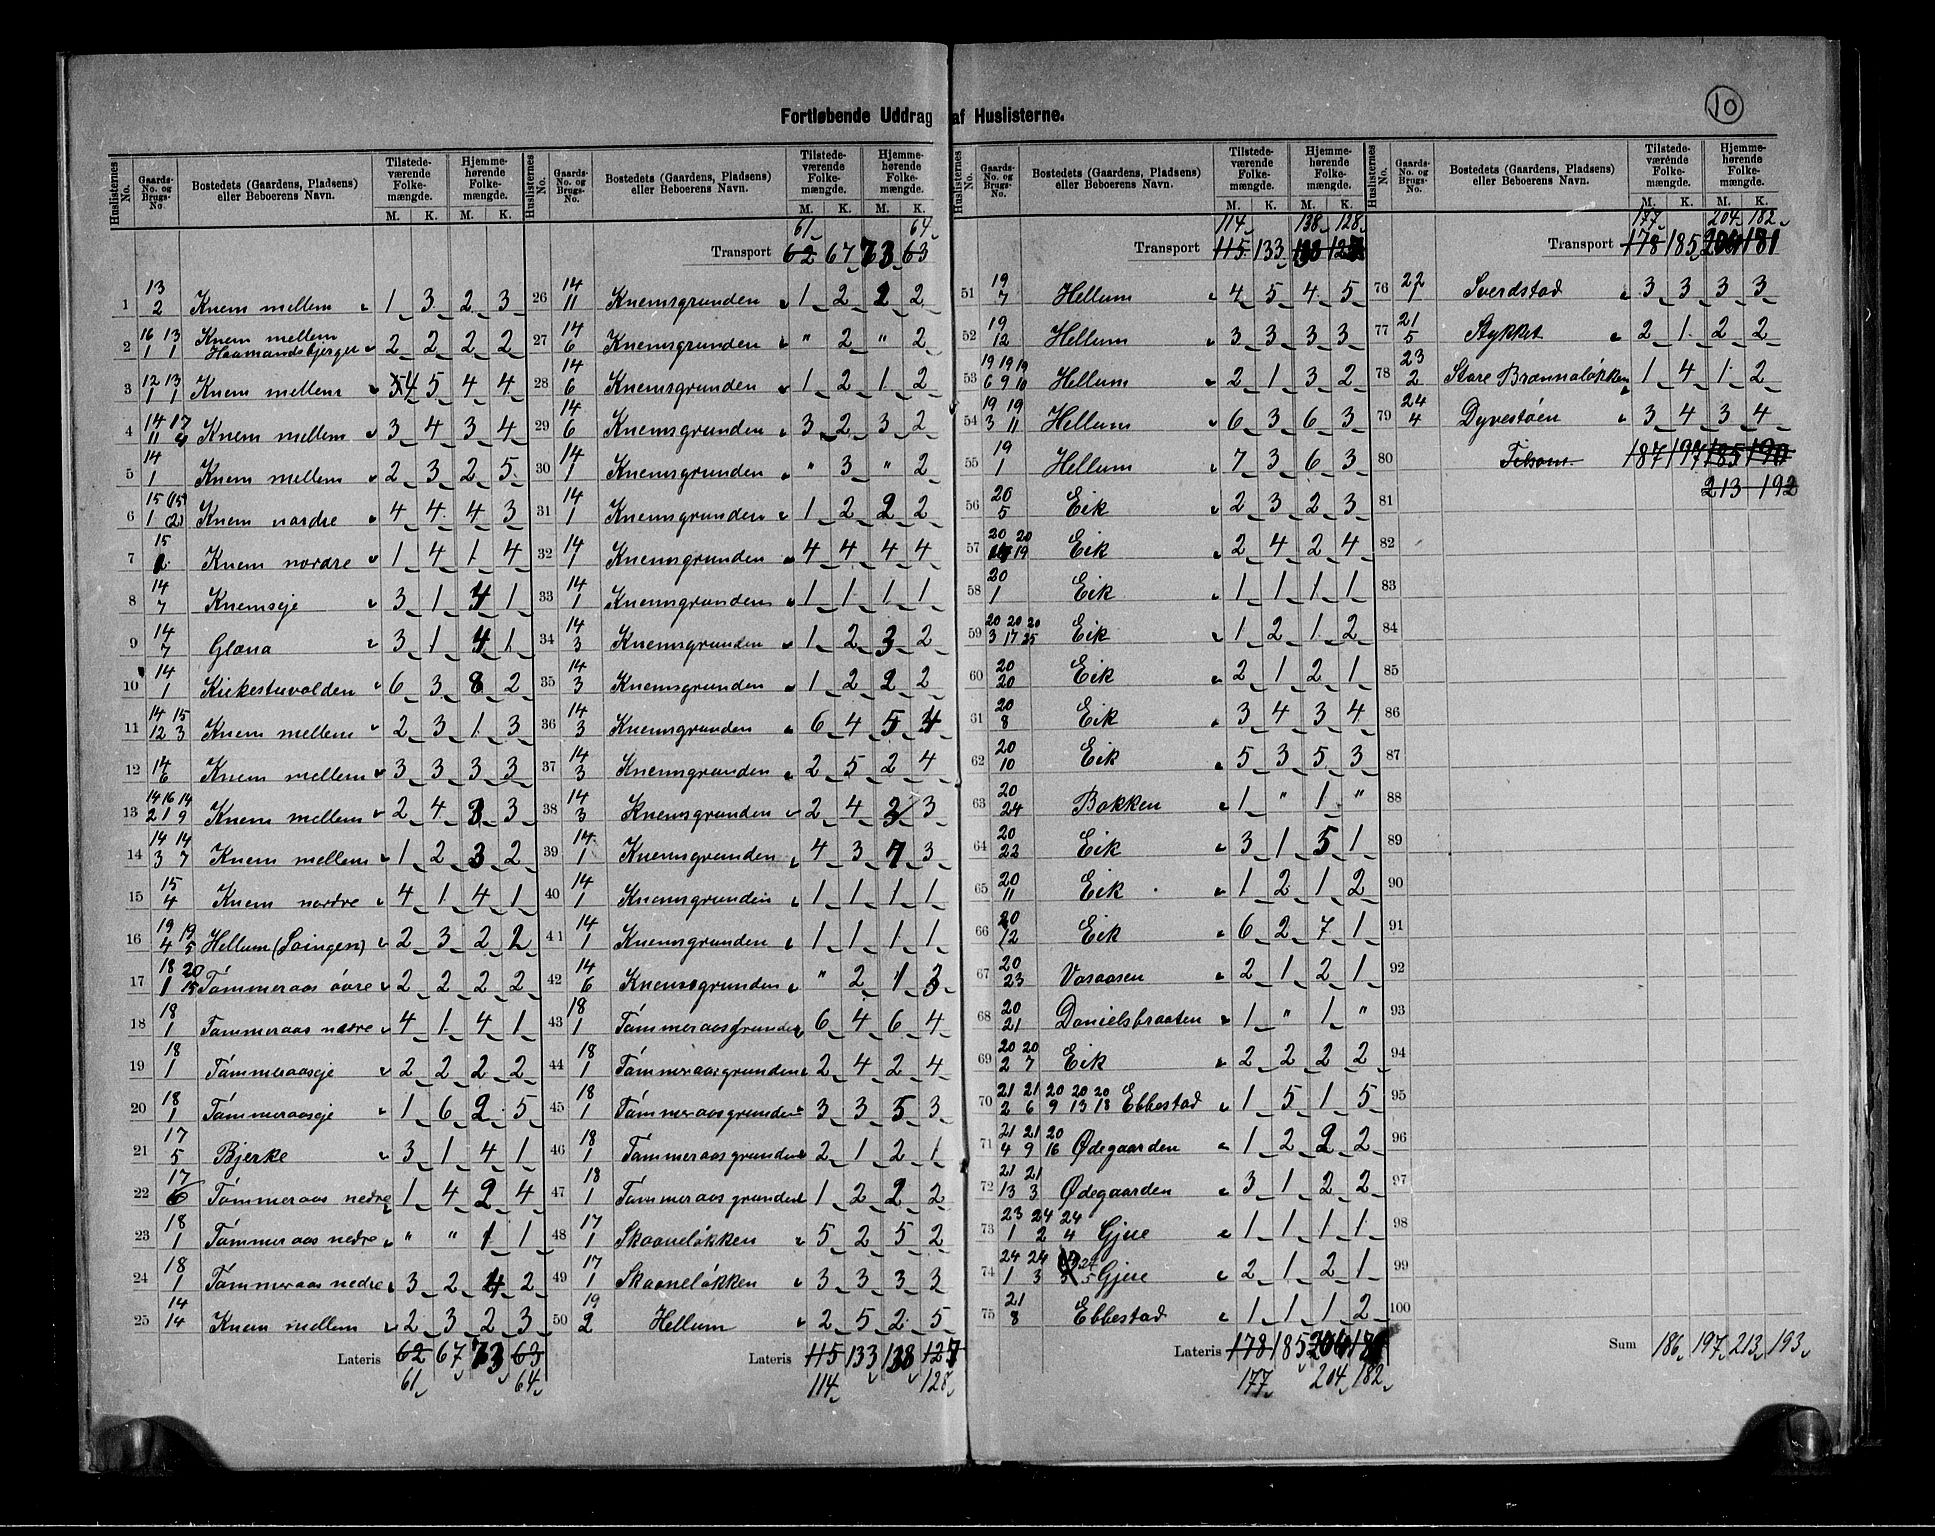 Fortløbende Uddrag af Huslisterne.
10
Huslisternes No. Gaards-No. og Brugs-No. Bostedets (Gaardens, Pladsens) eller Beboerens Navn. Tilstedeværende Folkemængde. M. K. Hjemmehørende Folkemængde. M. K.
1 13/2 Knem mellem 1 3 2 3
2 16/1 13/1 Knem mellem Haamandsbjerget 2 2 2 2
3 12/1 13/1 Knem mellem 4 5 4 4
4 14/11 17/4 Knem mellem 3 4 3 4
5 14/1 Knem mellem 2 3 2 5
6 15/1 (15/2) Knem nordre 4 4 4 3
7 15/2 Knem nordre 1 4 1 4
8 14/7 Knemseje 3 1 4 1
9 14/7 Glæna 3 1 4 1
10 14/1 Kirkestuvolden 6 3 8 2
11 14/12 15/3 Knem mellem 2 3 1 3
12 14/6 Knem mellem 3 3 3 3
13 14/2 16/1 14/9 Knem mellem 2 4 3 3
14 14/3 14/7 Knem mellem 1 2 3 2
15 15/4 Knem nordre 4 1 4 1
16 19/4 19/5 Hellum (Loingen) 2 3 2 2
17 18/1 20/15 Tømmeraas øvre 2 2 2 2
18 18/1 Tømmeraas nedre 4 1 4 1
19 18/1 Tømmeraaseje 2 2 2 2
20 18/1 Tømmeraaseje 1 6 2 5
21 17/5 Bjerke 3 1 4 1
22 17/6 Tømmeraas nedre 1 4 2 4
23 18/1 Tømmeraas nedre " " 1 1
24 18/1 Tømmeraas nedre 3 2 4 2
25 14/14 Knem mellem 2 3 2 3
Lateris 62 67 73 63
61 64
Huslisternes No. Gaards-No. og Brugs-No. Bostedets (Gaardens, Pladsens) eller Beboerens Navn. Tilstedeværende Folkemængde. M. K. Hjemmehørende Folkemængde. M. K.
61 64
Transport 62 67 73 63
26 14/11 Knemsgrunden 1 2 2 2
27 14/6 Knemsgrunden " 2 " 2
28 14/6 Knemsgrunden 1 2 1 2
29 14/6 Knemsgrunden 3 2 3 2
30 14/1 Knemsgrunden " 3 " 2
31 14/1 Knemsgrunden 1 2 2 2
32 14/1 Knemsgrunden 4 4 4 4
33 14/1 Knemsgrunden 1 1 1 1
34 14/3 Knemsgrunden 1 2 3 2
35 14/3 Knemsgrunden 1 2 2 2
36 14/3 Knemsgrunden 6 4 5 4
37 14/3 Knemsgrunden 2 5 2 4
38 14/3 Knemsgrunden 2 4 2 3
39 14/1 Knemsgrunden 4 3 7 3
40 14/1 Knemsgrunden 1 1 1 1
41 14/1 Knemsgrunden 1 1 1 1
42 14/6 Knemsgrunden " 2 1 3
43 18/1 Tømmeraasgrunden 6 4 6 4
44 18/1 Tømmeraasgrunden 2 4 2 4
45 18/1 Tømmeraasgrunden 3 3 5 3
46 18/1 Tømmeraasgrunden 2 1 2 1
47 18/1 Tømmeraasgrunden 1 2 2 2
48 17/1 Skaaneløkken 5 2 5 2
49 17/1 Skaaneløkken 3 3 3 3
50 19/2 Hellum 2 5 2 5
Lateris 115 133 138 127
114 128
Huslisternes No. Gaards-No. og Brugs-No. Bostedets (Gaardens, Pladsens) eller Beboerens Navn. Tilstedeværende Folkemængde. M. K. Hjemmehørende Folkemængde. M. K.
114 138 128
Transport 115 133 138 127
51 19/7 Hellum 4 5 4 5
52 19/12 Hellum 3 3 3 3
53 19/6 19/9 19/10 Hellum 2 1 3 2
54 19/3 19/11 Hellum 6 3 6 3
55 19/1 Hellum 7 3 6 3
56 20/5 Eik 2 3 2 3
57 20 20/19 Eik 2 4 2 4
58 20/1 Eik 1 1 1 1
59 20/3 20/17 20/25 Eik 1 2 1 2
60 20/20 Eik 2 1 2 1
61 20/8 Eik 3 4 3 4
62 20/10 Eik 5 3 5 3
63 20/24 Bakken 1 " 1 "
64 20/22 Eik 3 1 5 1
65 20/11 Eik 1 2 1 2
66 20/12 Eik 6 2 7 1
67 20/23 Vasaasen 2 1 2 1
68 20/21 Danielsbraaten 1 " 1 "
69 20/2 20/7 Eik 2 2 2 2
70 21/2 21/6 20/9 20/13 20/18 Ebbestad 1 5 1 5
71 21/4 21/9 20/16 Ødegaarden 1 2 2 2
72 21/13 21/3 Ødegaarden 3 1 2 2
73 23/1 24/2 24/4 Gjue 1 1 1 1
74 24/1 24/3 24/5 Gjue 2 1 2 1
75 21/8 Ebbestad 1 1 1 2
Lateris 178 185 204 181
177 204 182
Huslisternes No. Gaards-No. og Brugs-No. Bostedets (Gaardens, Pladsens) eller Beboerens Navn. Tilstedeværende Folkemængde. M. K. Hjemmehørende Folkemængde. M. K.
177 204 182
Transport 178 185 204 181
76 22/1 Sverdstad 3 3 3 3
77 21/5 Stykket 2 1 2 2
78 23/2 Store Brænnaløkken 1 4 1 2
79 24/4 Dyvestøen 3 4 3 4
80 187 197 185 190
81 213 192
82
83
84
85
86
87
88
89
90
91
92
93
94
95
96
97
98
99
100
Sum 186 197 213 193